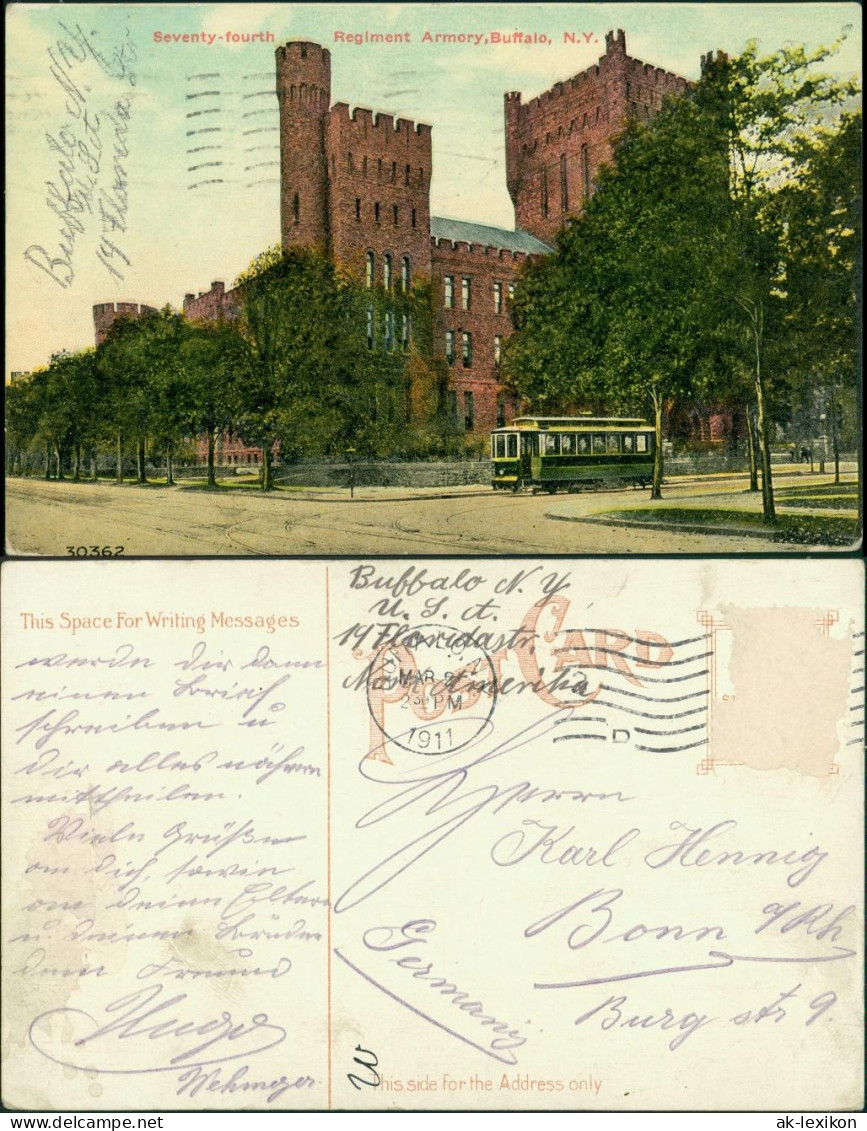 Seventy-fourth Regiment Armory, Buffalo, N.Y.
Buffalo N. Y.
19 Florida str
30362
Buffalo N. Y
U. S. A.
19 Floridastr.
Nord Amerika
This Space For Writing Messages
POST CARD
werde dir dann
einen Brief
schreiben u
dir alles nähere
mittheilen.
Viele Grüße
an dich, sowie
an deine Eltern
u. deinen Bruder
dein Freund
Hugo
Wehmeyer
BUFFALO, N.Y.
MAR 9
2 30 PM
1911
D
Herrn
Karl Hennig
Bonn a/Rh
Germany
Burg str 9.
W
This side for the Address only
delcampe.net
ak-lexikon